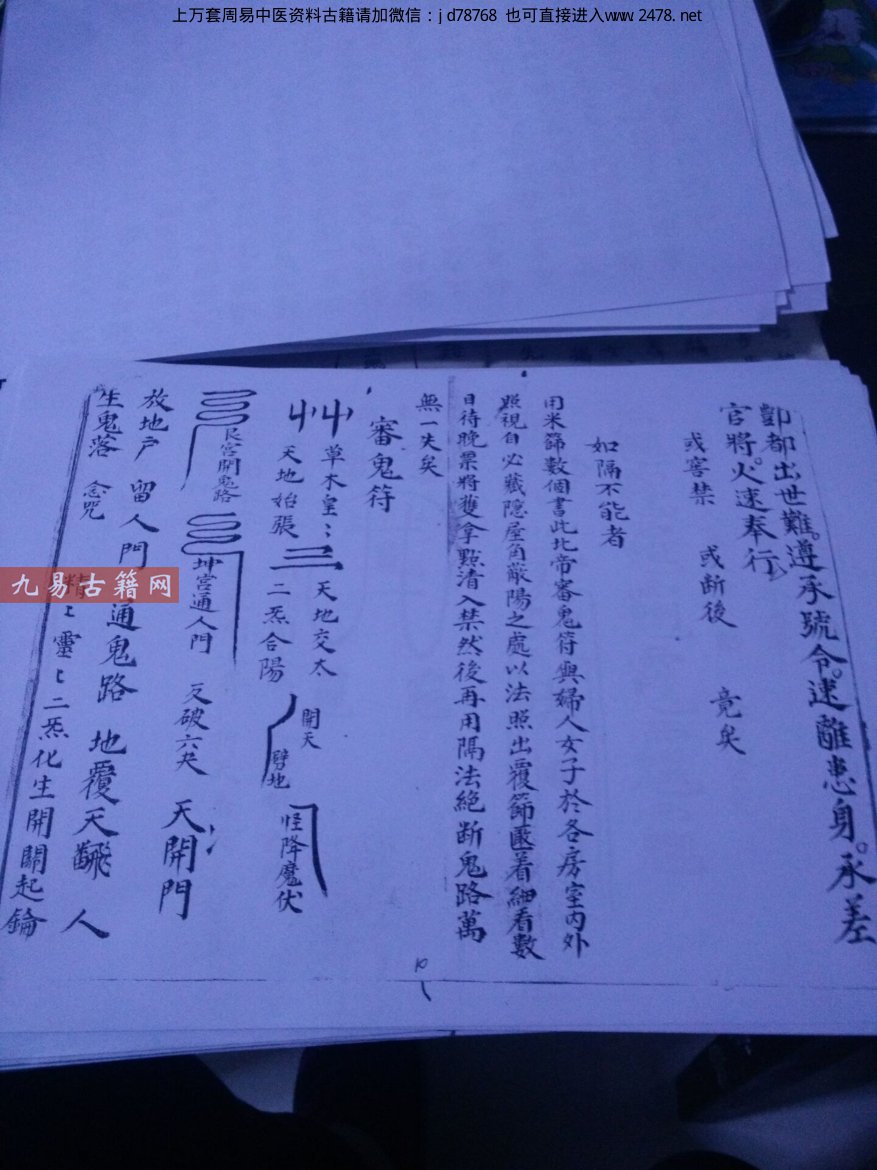 上万套周易中医资料古籍请加微信：jd78768 也可直接进入www.2478.net
酆都出世難。遵承號令。速離患身。承差
官將。火速奉行
或害禁 或断後 竟矣
如隔不能者
用米篩數個書此北帝審鬼符與婦人女子於各房室内外
照視自必藏隐屋角蔽陽之處以法照出覆篩匧着細看數
日待晚票將獲拿點清入禁然後再用隔法絶断鬼路萬
無一失矣
審鬼符
草木皇 天地交太 開天
天地始張 二炁合陽 劈地 怪降魔伏
艮宫開鬼路 坤宫通人門 反破六夫 天開門
放地户 留人門 通鬼路 地覆天翻 人
生鬼落 念咒 靈 二炁化生開闢起鑰
九易古籍网
10